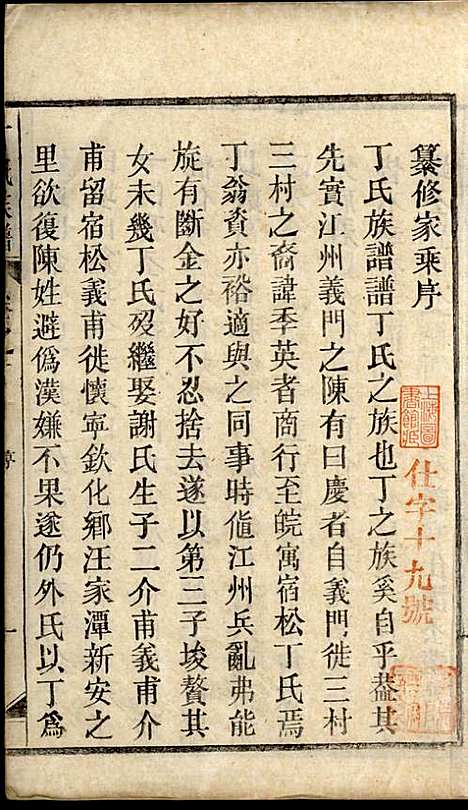 纂修家乘序
丁氏族譜譜丁氏之族也丁之族奚自乎葢其
先實江州義門之陳有曰慶者自義門徙三村
三村之裔諱季英者商行至皖寓宿松丁氏焉
丁翁資亦裕適與之同事時值江州兵亂弗能
旋有斷金之好不忍捨去遂以第三子埈贅其
女未幾丁氏歿繼娶謝氏生子二介甫義甫介
甫留宿松義甫徙懷寧欽化鄉汪家潭新安之
里欲復陳姓避偽漢嫌不果遂仍外氏以丁為
上海圖書館藏
仕字十九號